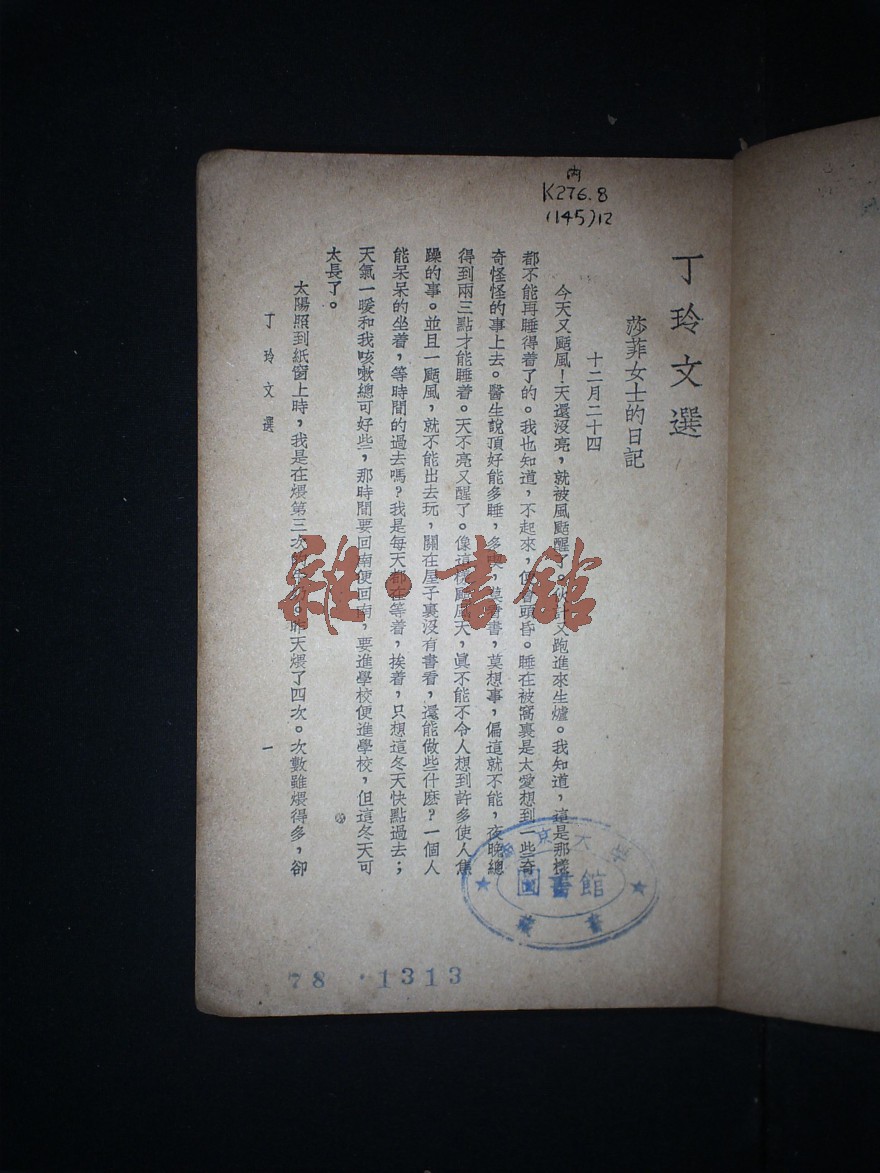 內
K276.8
(145)12
丁玲文選
莎菲女士的日記
十二月二十四
今天又颳風!天還沒亮,就被風颳醒了。伙計又跑進來生爐。我知道,這是那樣
都不能再睡得着了的。我也知道,不起來,便會頭昏。睡在被窩裏是太愛想到一些奇
奇怪怪的事上去。醫生說頂好能多睡,多喫,莫看書,莫想事,偏這就不能,夜晚總
得到兩三點才能睡着。天不亮又醒了。像這樣颳風天,眞不能不令人想到許多使人焦
躁的事。並且一颳風,就不能出去玩,關在屋子裏沒有書看,還能做些什麽?一個人
能呆呆的坐着,等時間的過去嗎?我是每天都在等着,挨着,只想這冬天快點過去;
天氣一暖和我咳嗽總可好些,那時間要回南便回南,要進學校便進學校,但這冬天可
太長了。
太陽照到紙窗上時,我是在煨第三次的牛奶。昨天煨了四次。次數雖煨得多,卻
丁玲文選
一
雜·書館
圖書館
藏書
78·1313